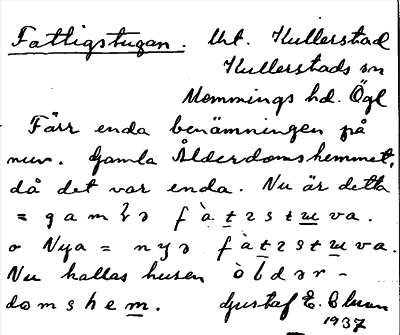 Fattigstugan. Utt. Kullerstad
Kullerstads sn
Memmings hd. Ögl
Förr enda benämningen på
nuv. Gamla Ålderdomshemmet,
då det var enda. Nu är detta
= gamla fàtɪstuva.
o Nya = nyə fàtɪstuva.
Nu kallas husen òldər-
domshem. Gustaf E. Clman
1937